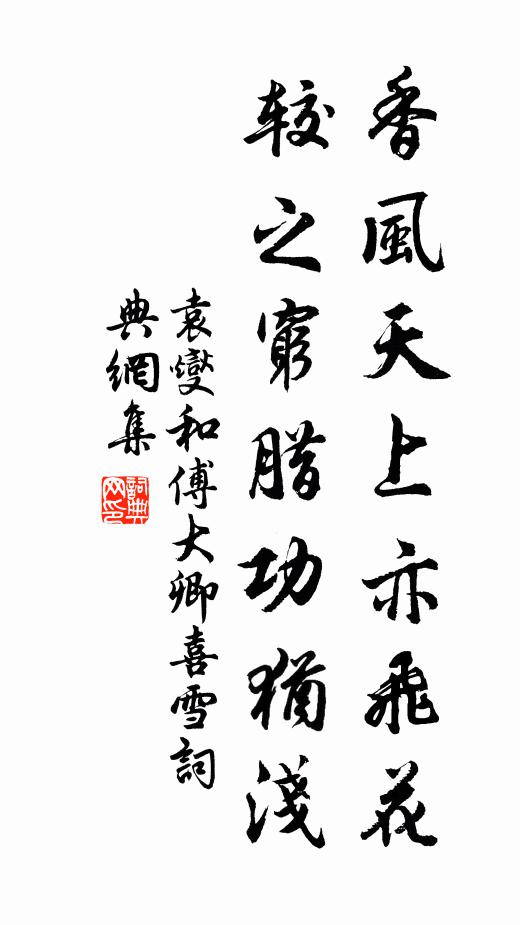 香風天上亦飛花
較之窮腊功猶淺
袁燮和傅大卿喜雪詞
典網集
詞典
网印